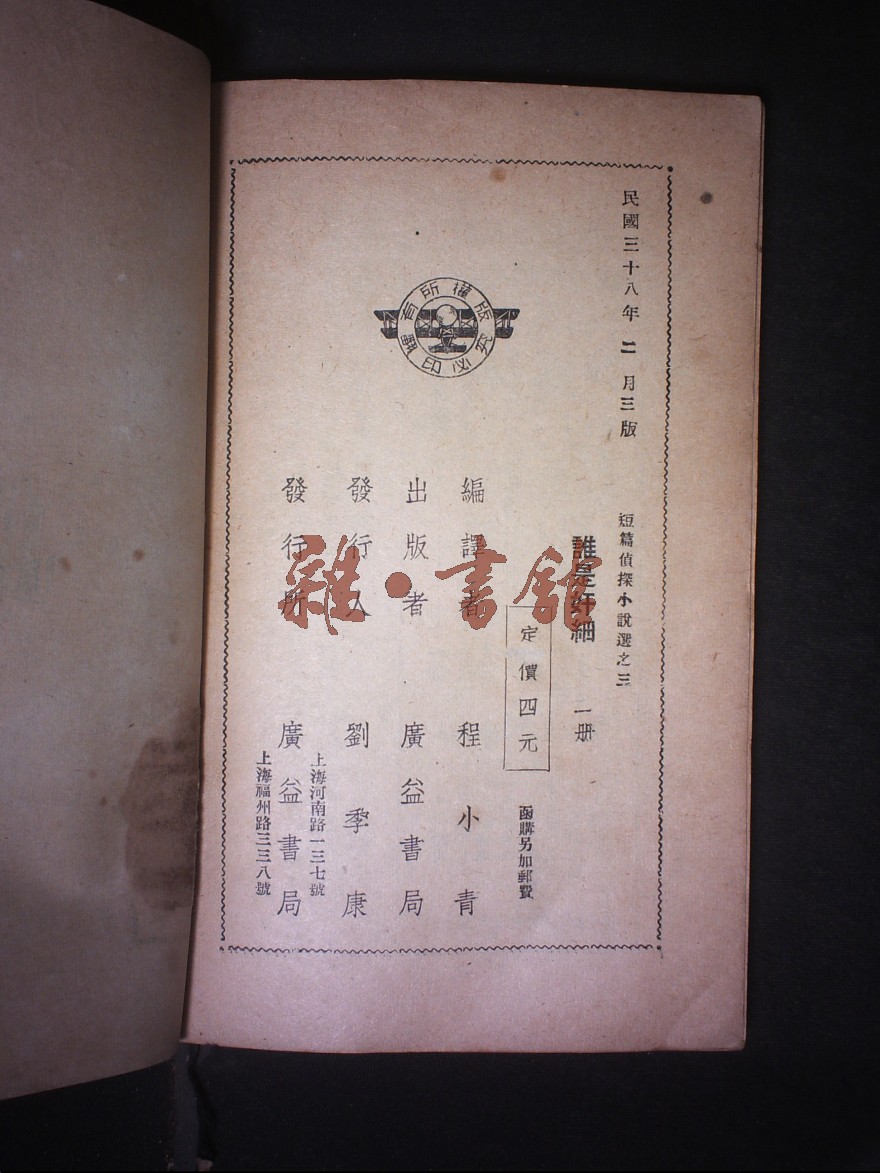 民國三十八年二月三版
短篇偵探小說選之三
誰是奸細 一册
定價四元
函購另加郵費
編譯者 程小青
出版者 廣益書局
發行人 劉季康
發行所 廣益書局
上海河南路一三七號
上海福州路三三八號
版權所有
翻印必究
雜·書館